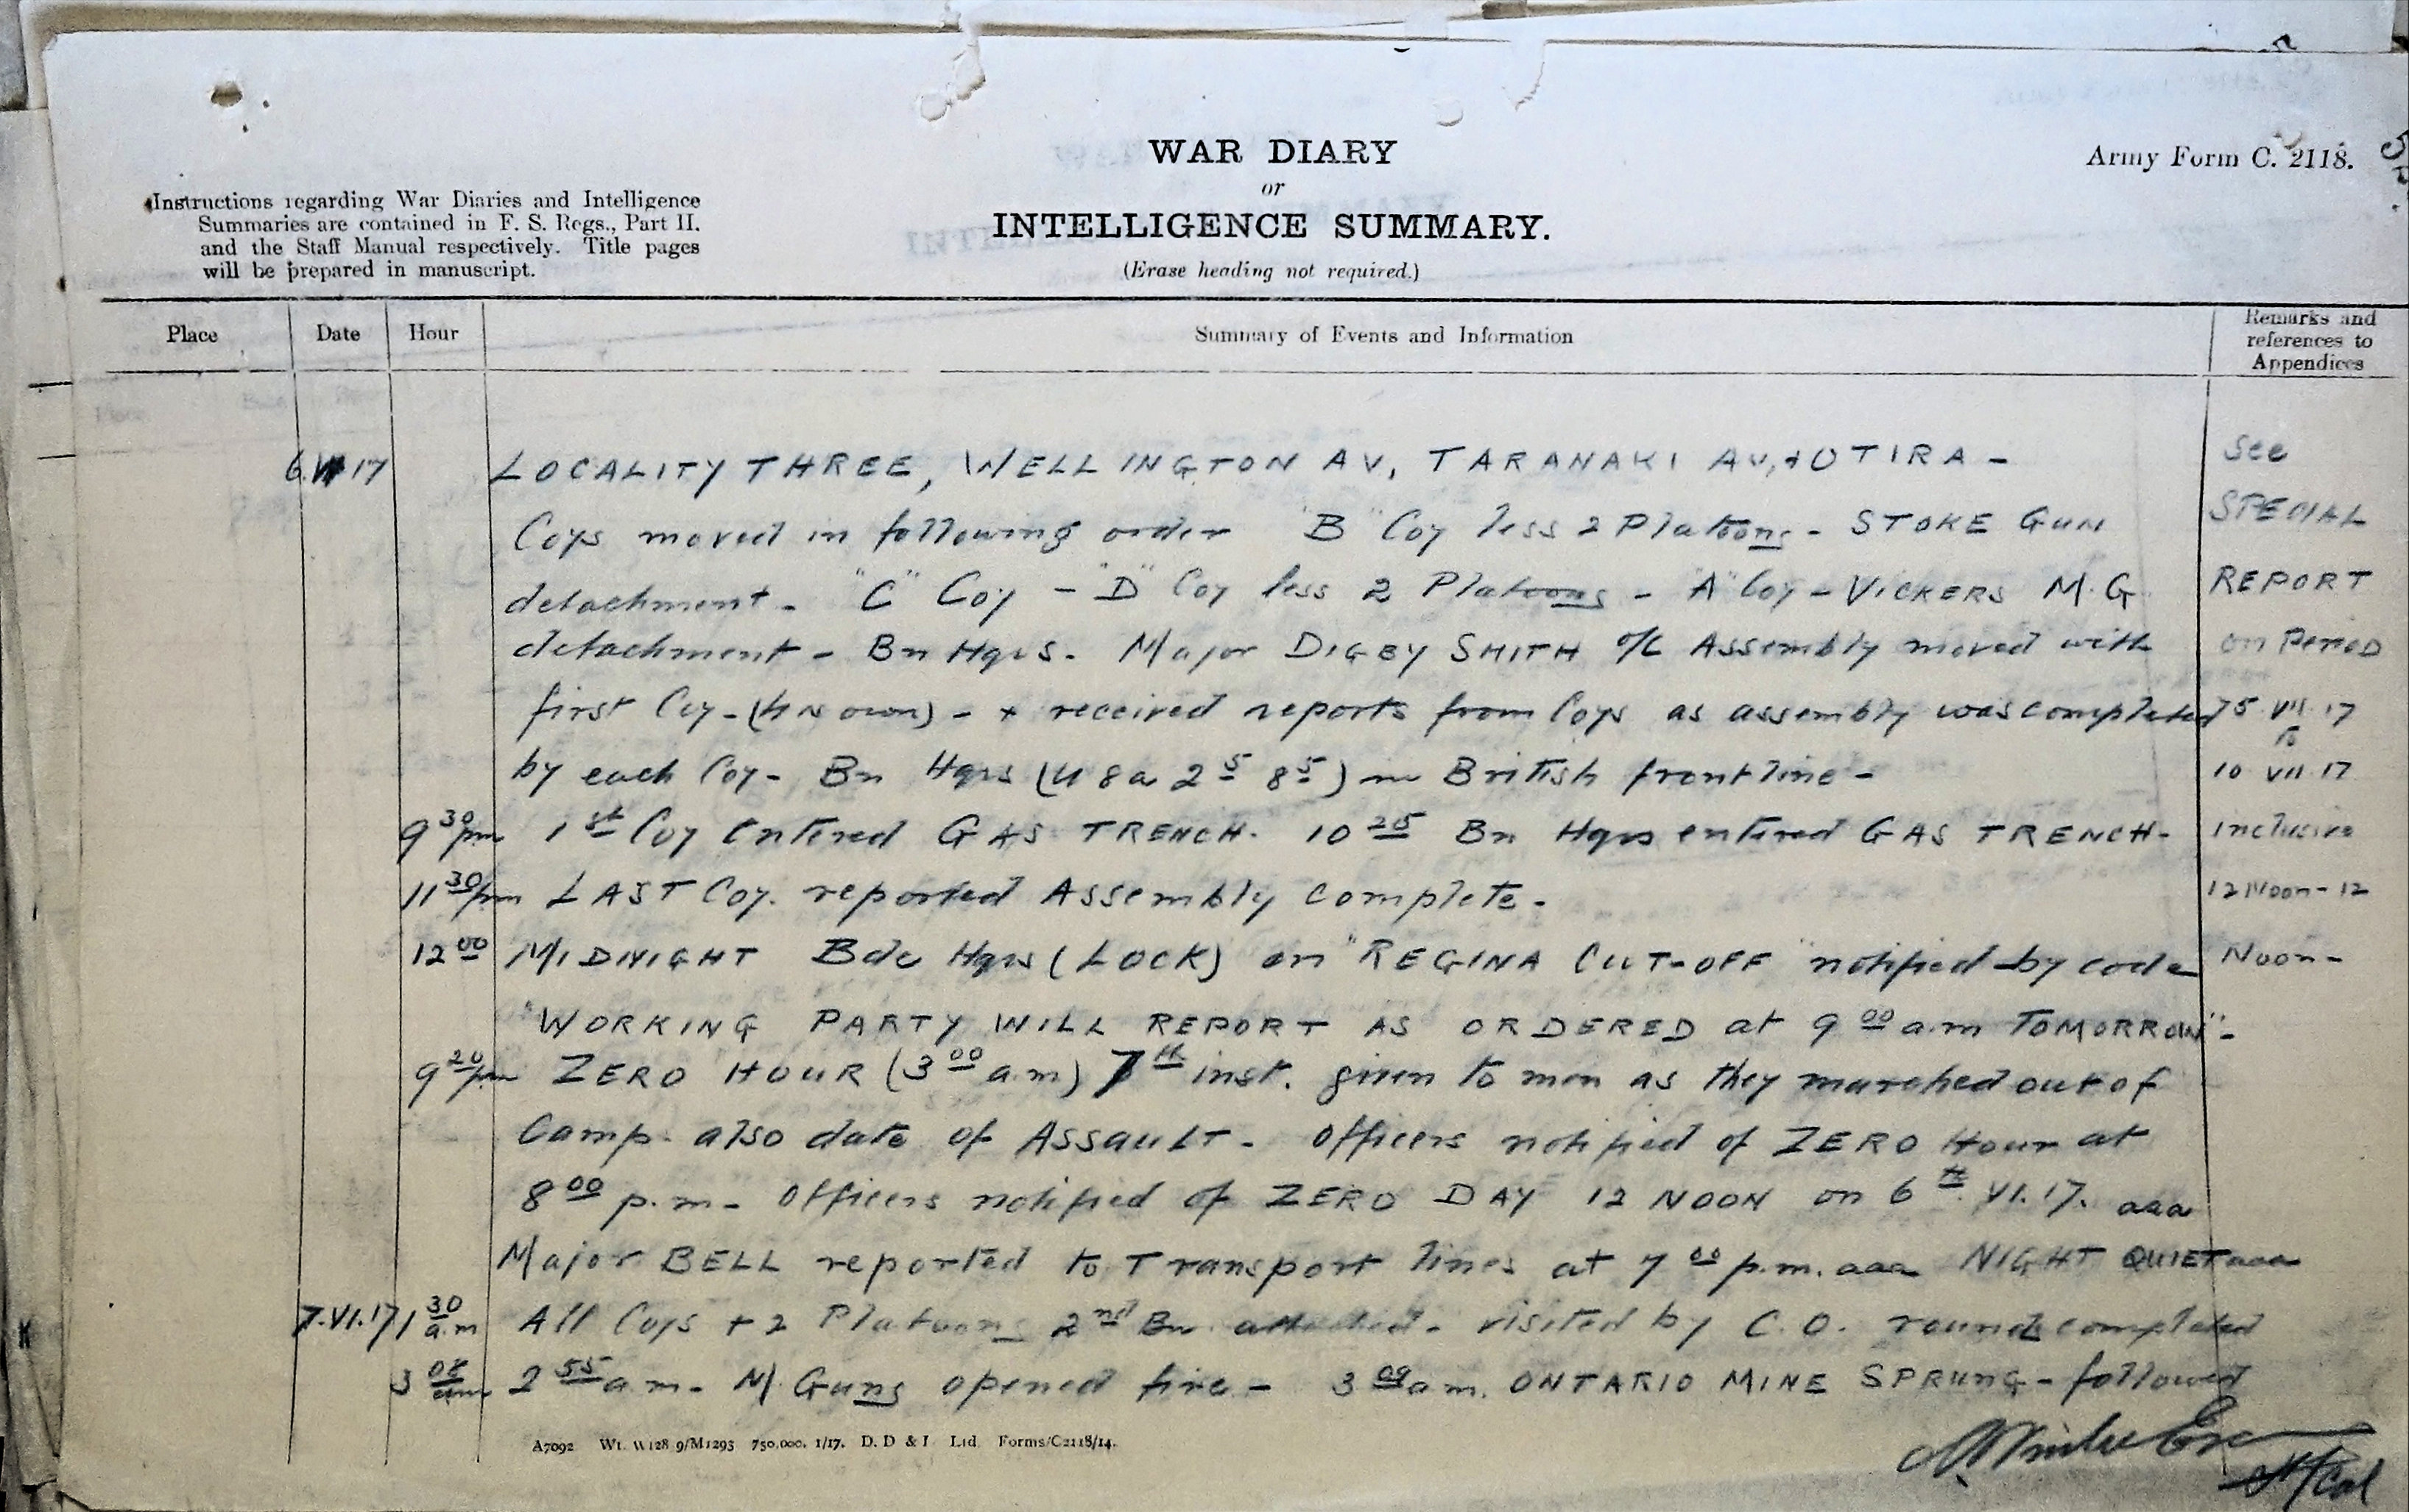 WAR DIARY
or
INTELLIGENCE SUMMARY.
(Erase heading not required.)
Army Form C. 2118.
Instructions regarding War Diaries and Intelligence
Summaries are contained in F. S. Regs., Part II.
and the Staff Manual respectively. Title pages
will be prepared in manuscript.
Place Date Hour Summary of Events and Information Remarks and
references to
Appendices
6.VI.17 LOCALITY THREE, WELLINGTON AV, TARANAKI AV, + OTIRA - See
Coys moved in following order "B" Coy less 2 Platoons - STOKE GUN SPECIAL
detachment - "C" Coy - "D" Coy less 2 Platoons - "A" Coy - VICKERS M.G REPORT
detachment - Bn Hqrs. Major DIGBY SMITH O/C Assembly moved with on PERIOD
first Coy - - + received reports from Coys as assembly was completed 5 VII 17
to
by each Coy - Bn Hqrs (U 8 a 2 5 8 5) in British front line - 10 VII 17
9 30 pm 1st Coy entered GAS TRENCH. 10 25 Bn Hqrs entered GAS TRENCH - inclusive
11 30 pm LAST Coy. reported Assembly complete. 12 Noon - 12
12 00 MIDNIGHT Bde Hqrs (LOCK) on "REGINA CUT-OFF" notified by code Noon -
"WORKING PARTY WILL REPORT AS ORDERED at 9 00 a.m TOMORROW" -
9 20 pm ZERO HOUR (3 00 a.m) 7th inst. given to men as they marched out of
Camp. also date of ASSAULT - Officers notified of ZERO Hour at
8 00 p.m - Officers notified of ZERO DAY 12 NOON on 6th. VI.17. aaa
Major BELL reported to Transport lines at 7 00 p.m. aaa NIGHT QUIET aaa
7.VI.17 1 30 a.m All Coys + 2 Platoons 2nd Bn attached - visited by C.O. rounds completed
3 08 am 2 55 a.m - M. Guns opened fire - 3 09 a.m. ONTARIO MINE SPRUNG - followed
A7092 Wt. W128 9/M1293 750,000. 1/17. D. D & L Ltd. Forms/C2118/14.